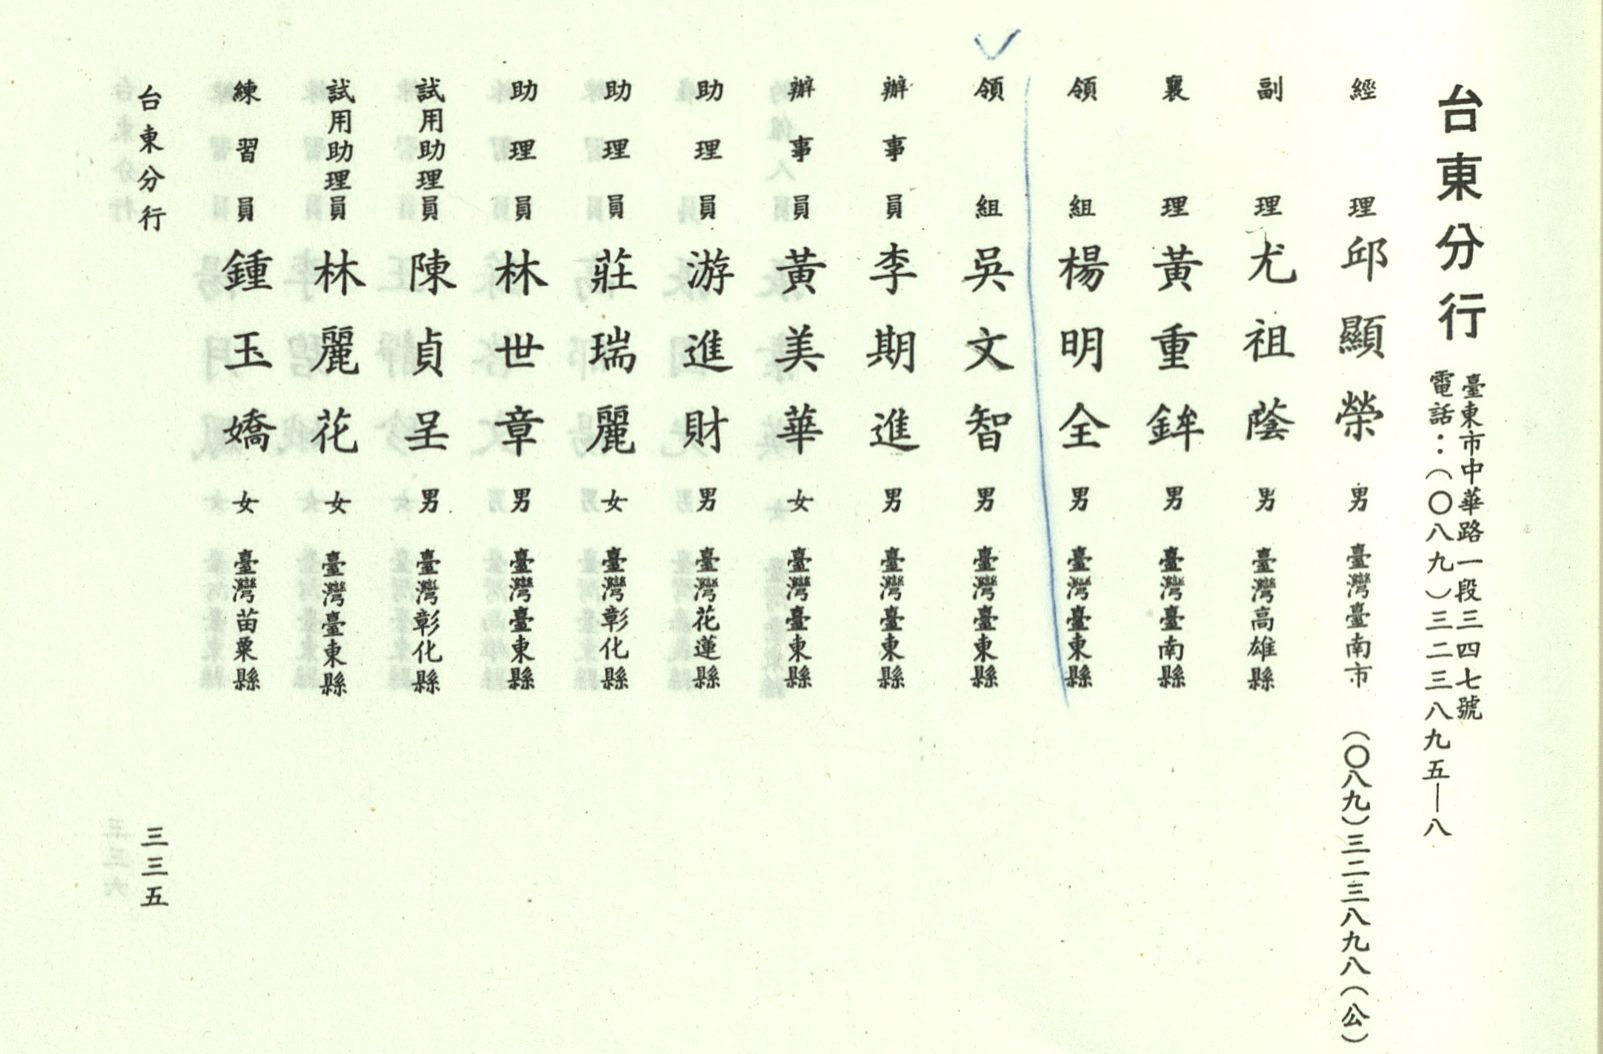 台東分行
臺東市中華路一段三四七號
電話：（〇八九）三二三八九五—八
經理 邱顯榮 男 臺灣臺南市 （〇八九）三二三八九八（公）
副理 尤祖蔭 男 臺灣高雄縣
襄理 黃重鉾 男 臺灣臺南縣
領組 楊明全 男 臺灣臺東縣
領組 吳文智 男 臺灣臺東縣
辦事員 李期進 男 臺灣臺東縣
辦事員 黃美華 女 臺灣臺東縣
助理員 游進財 男 臺灣花蓮縣
助理員 莊瑞麗 女 臺灣彰化縣
助理員 林世章 男 臺灣臺東縣
試用助理員 陳貞呈 男 臺灣彰化縣
試用助理員 林麗花 女 臺灣臺東縣
練習員 鍾玉嬌 女 臺灣苗栗縣
台東分行
三三五